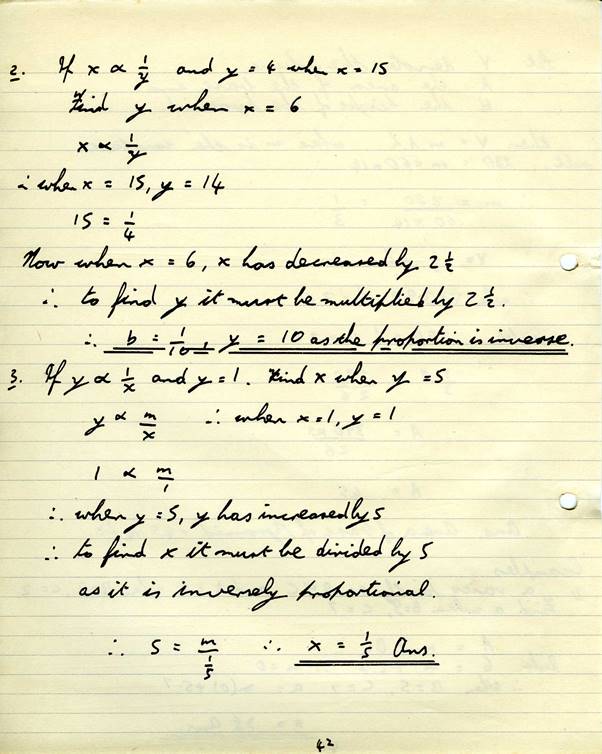 2. If x ∝ 1/y and y = 4 when x = 15
Find y when x = 6
x ∝ 1/y
∴ when x = 15, y = 14
15 = 1/4
Now when x = 6, x has decreased by 2 1/2
∴ to find y it must be multiplied by 2 1/2.
∴ 6 = 1/10, y = 10 as the proportion is inverse.
3. If y ∝ 1/x and y = 1. Find x when y = 5
y ∝ m/x ∴ when x = 1, y = 1
1 ∝ m/1
∴ when y = 5, y has increased by 5
∴ to find x it must be divided by 5
as it is inversely proportional.
∴ 5 = m/(1/5) ∴ x = 1/5 Ans.
42